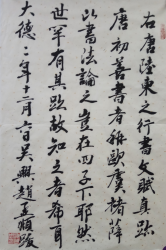 右唐陸東之行書文賦真跡
唐初善書者稱歐虞褚薛
以書法論之豈在四子下耶然
世罕有其跡故知之者希耳
大德二年十二月六日吳興趙孟頫跋